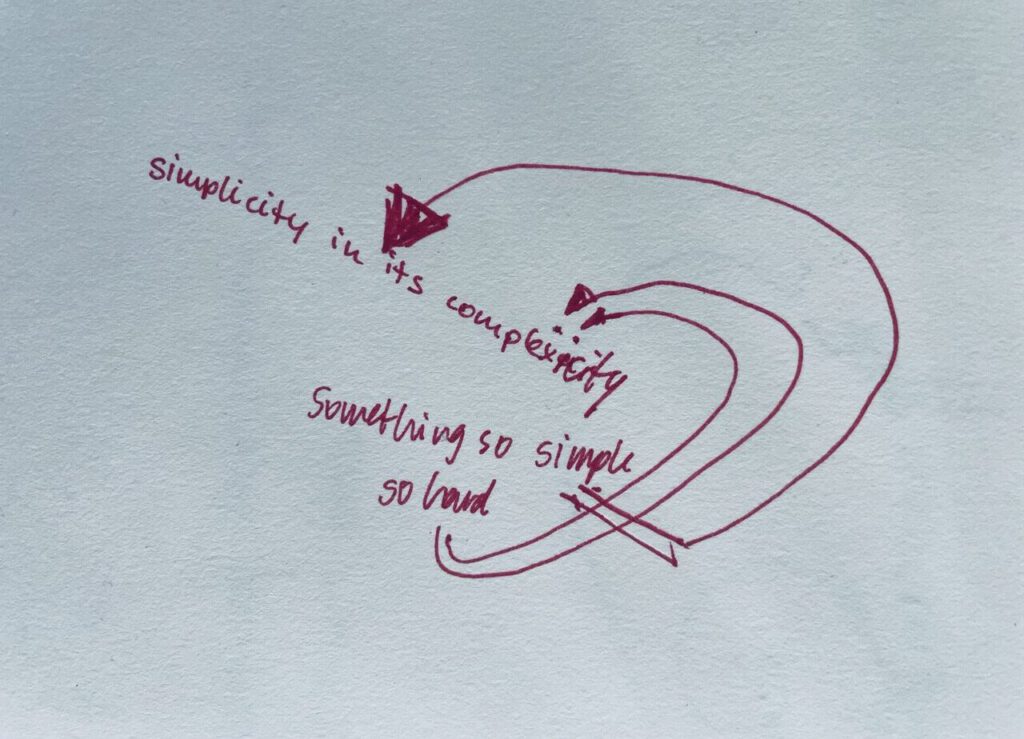 simplicity in its complexicity
Something so simple
so hard